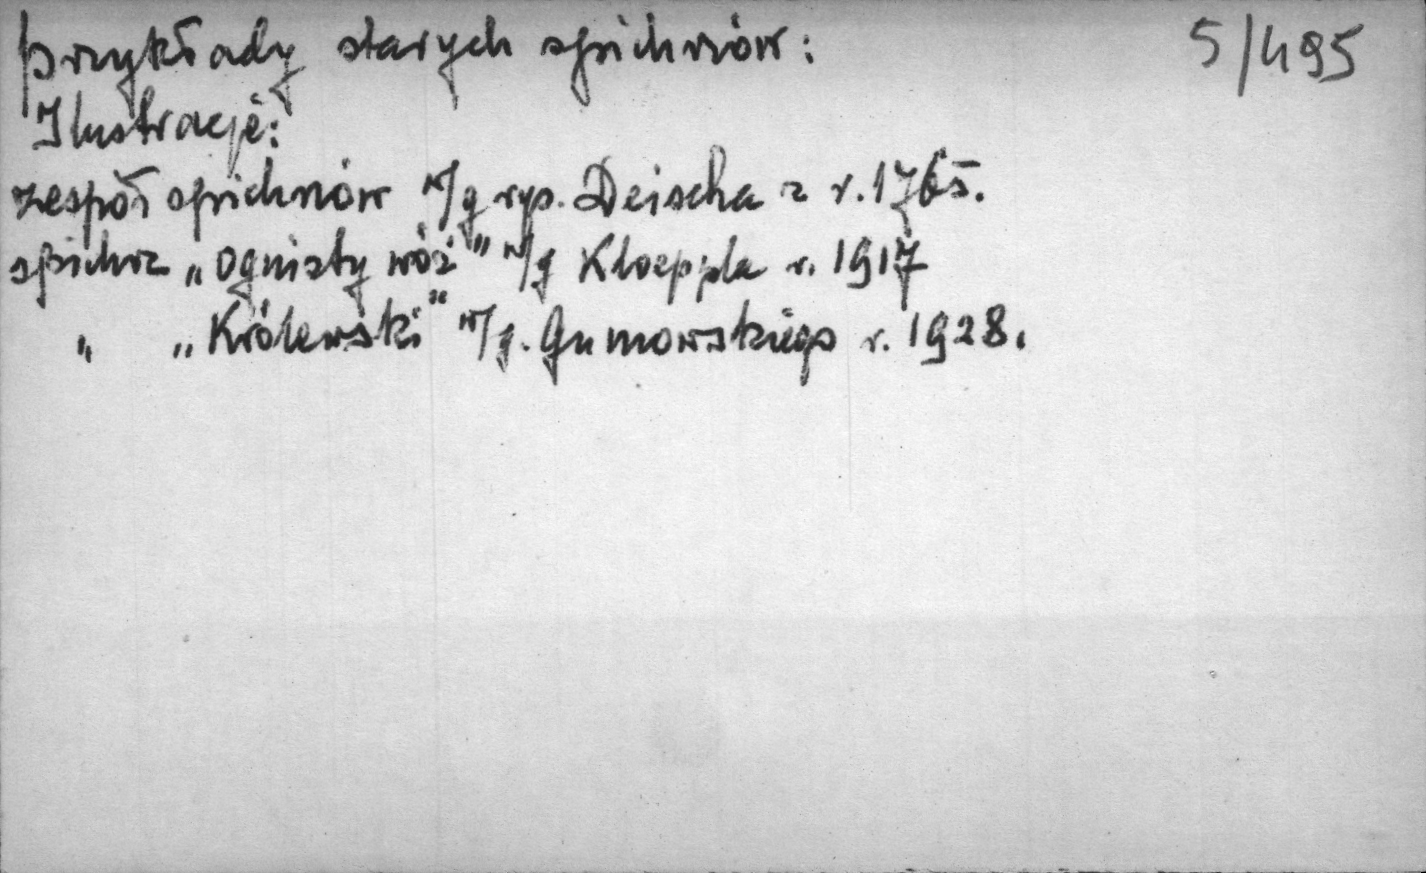 przykłady starych spichrzów: 5/495
Ilustracje:
zespół spichrzów w/g rys. Deischa z r. 1765.
spichrz „Ognisty wóz" w/g Kloeppla r. 1917
„ „Królewski" w/g. Gumowskiego r. 1928.